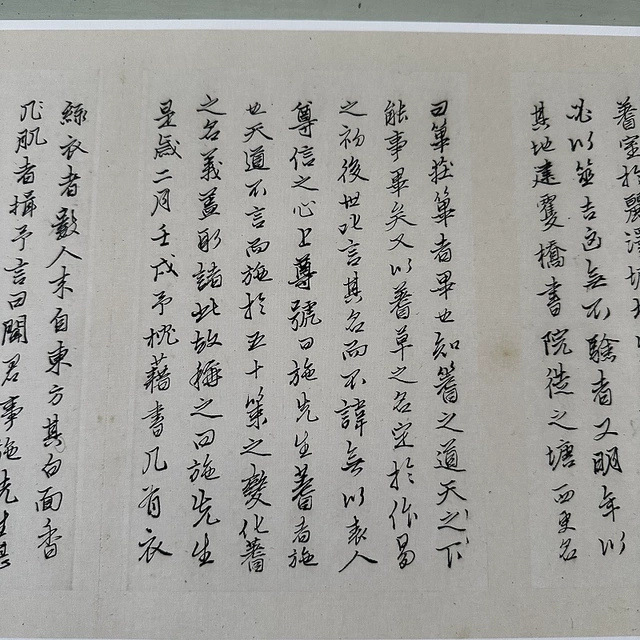 蓍室於麗澤坊
必以筮吉凶無不驗者又明年以
其地建雙橋書院徙之塘西更名
曰筮莊筮者畢也知蓍之道天之下
能事畢矣又以蓍草之名定於作易
之初後世叱言其名而不諱無以表人
尊信之心上尊號曰施先生蓍者施
也天道不言而施於五十策之變化蓍
之名義蓋取諸此故稱之曰施先生
是歲二月壬戌予枕藉書几有衣
絲衣者數人末自東方其白面香
几肌者揖予言曰聞君事施先生甚